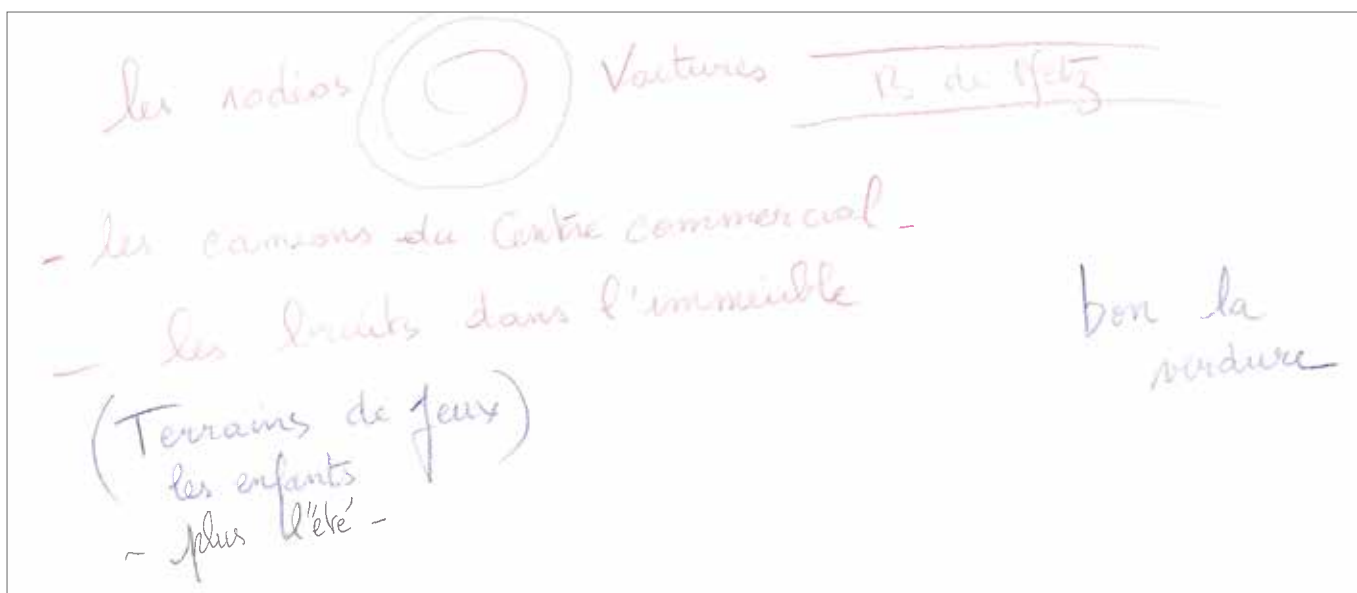 les radios Voitures B de
- les camions du Centre commercial -
- les bruits dans l'immeuble
bon la
verdure
(Terrains de Jeux)
les enfants
- plus l'été -